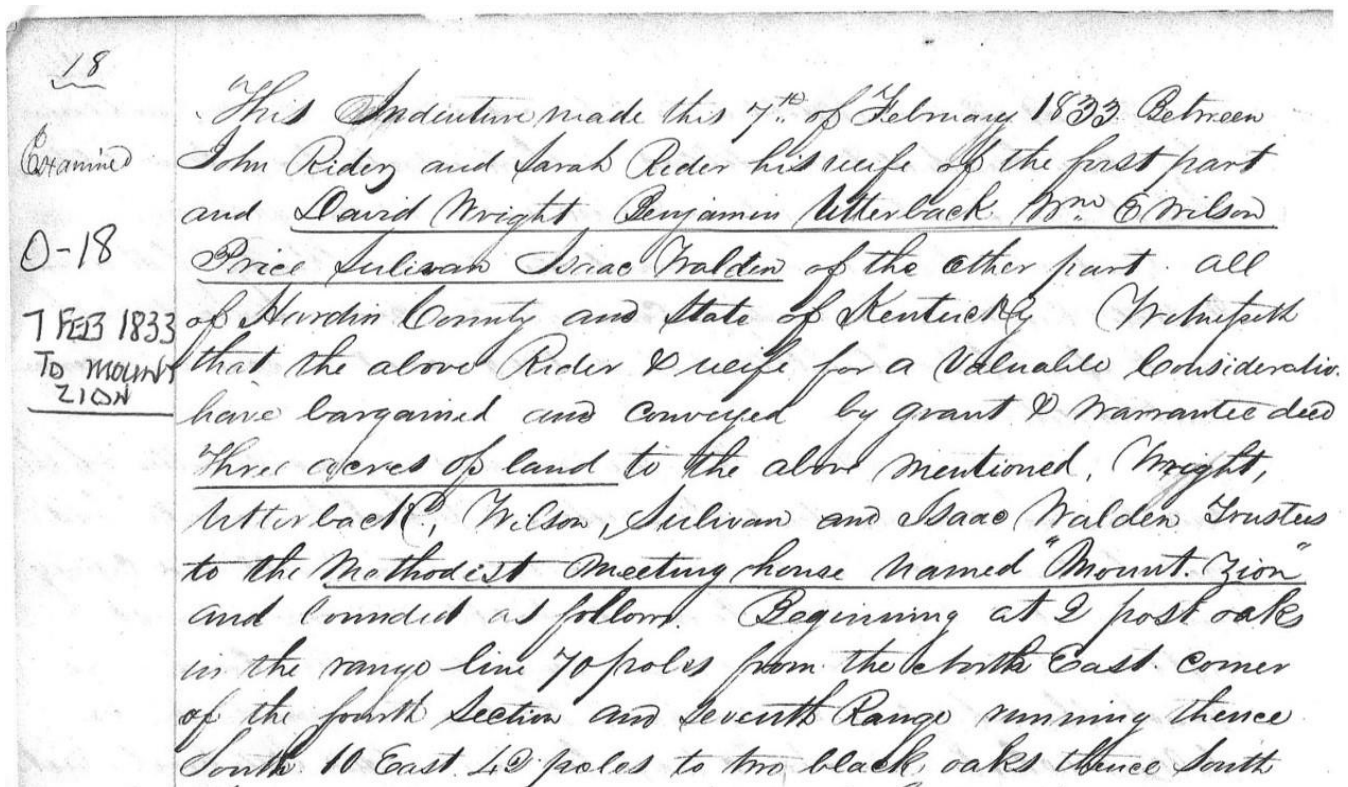 18
Examined
O-18
7 FEB 1833
TO MOUNT
ZION
This Indenture made this 7th of February 1833 Between
John Rider and Sarah Rider his wife of the first part
and David Wright Benjamin Utterback Wm E Wilson
Price Sulivan Isaac Walden of the other part. all
of Hardin County and State of Kentucky Witnesseth
that the above Rider & wife for a Valuable Consideratio.
have bargained and conveyed by grant & Warrantee deed
Three acres of land to the above mentioned, Wright,
Utterback, Wilson, Sulivan and Isaac Walden Trustees
to the Methodist Meeting house Named "Mount. Zion"
and bounded as follow. Beginning at 2 post oaks
in the range line 70 poles from the North East corner
of the fourth Section and Seventh Range running thence
South 10 East 42 poles to two black oaks thence South